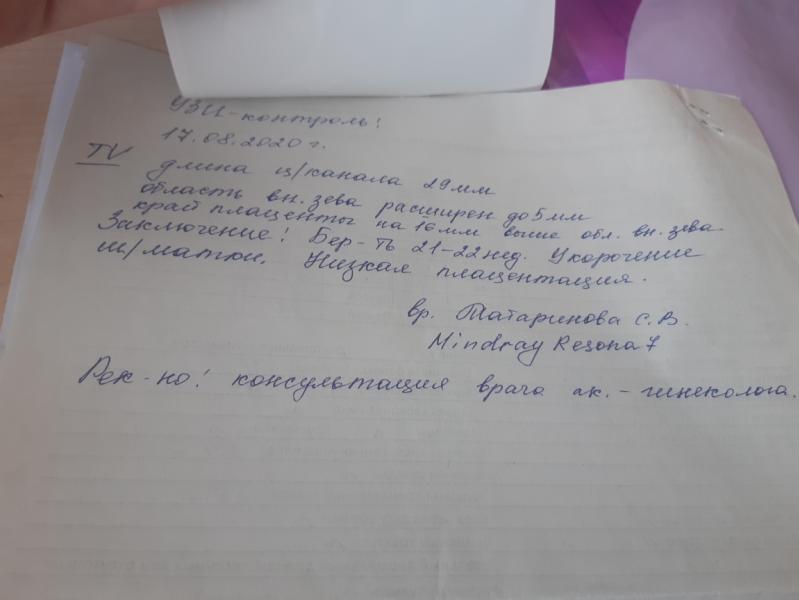 УЗИ-контроль!
17.08.2020 г.
TV длина ц/канала 29 мм
область вн. зева расширен до 5 мм
край плаценты на 16 мм выше обл. вн. зева.
Заключение! Бер-ть 21-22 нед. Укорочение
ш/матки. Низкая плацентация.
вр. Татаринова С.В.
Mindray Resona 7
Рек-но! консультация врача ак.-гинеколога.